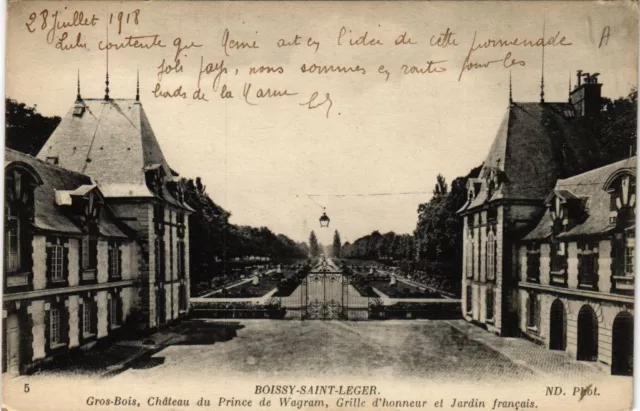 28 Juillet 1918
Lulu contente que Rémi ait eu l'idée de cette promenade
joli pays, nous sommes en route pour les
bords de la Marne
A
5
BOISSY-SAINT-LEGER.
Gros-Bois, Château du Prince de Wagram, Grille d'honneur et Jardin français.
ND Phot.